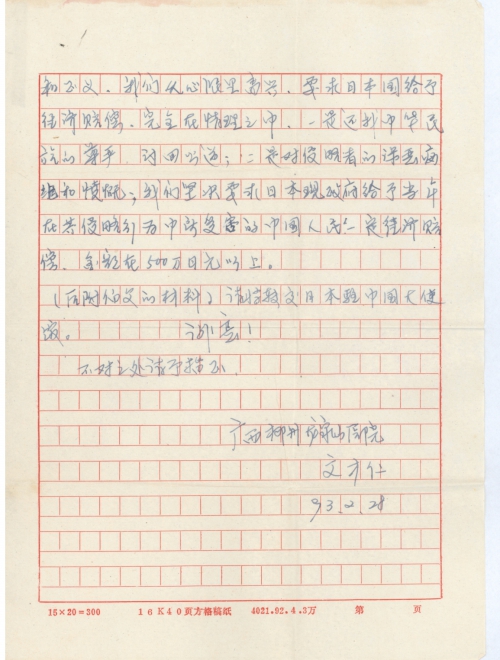 和正义。我们从心眼里高兴。要求日本国给予
经济赔偿、完全在情理之中，一是还我中华民
族的尊严，讨回公道；二是对侵略者的
和愤慨；我们坚决要求日本现政府给予当年
在其侵略行为中所受害的中国人民一定经济赔
偿、金额在500万日元以上。
（后附伯父的材料）请转交日本驻中国大使
馆。 谢意！
不对之处请予指正、
广西柳州 医院
文才仁
93.2.28
15×20=300 16K40页方格稿纸 4021.92.4.3万 第 页